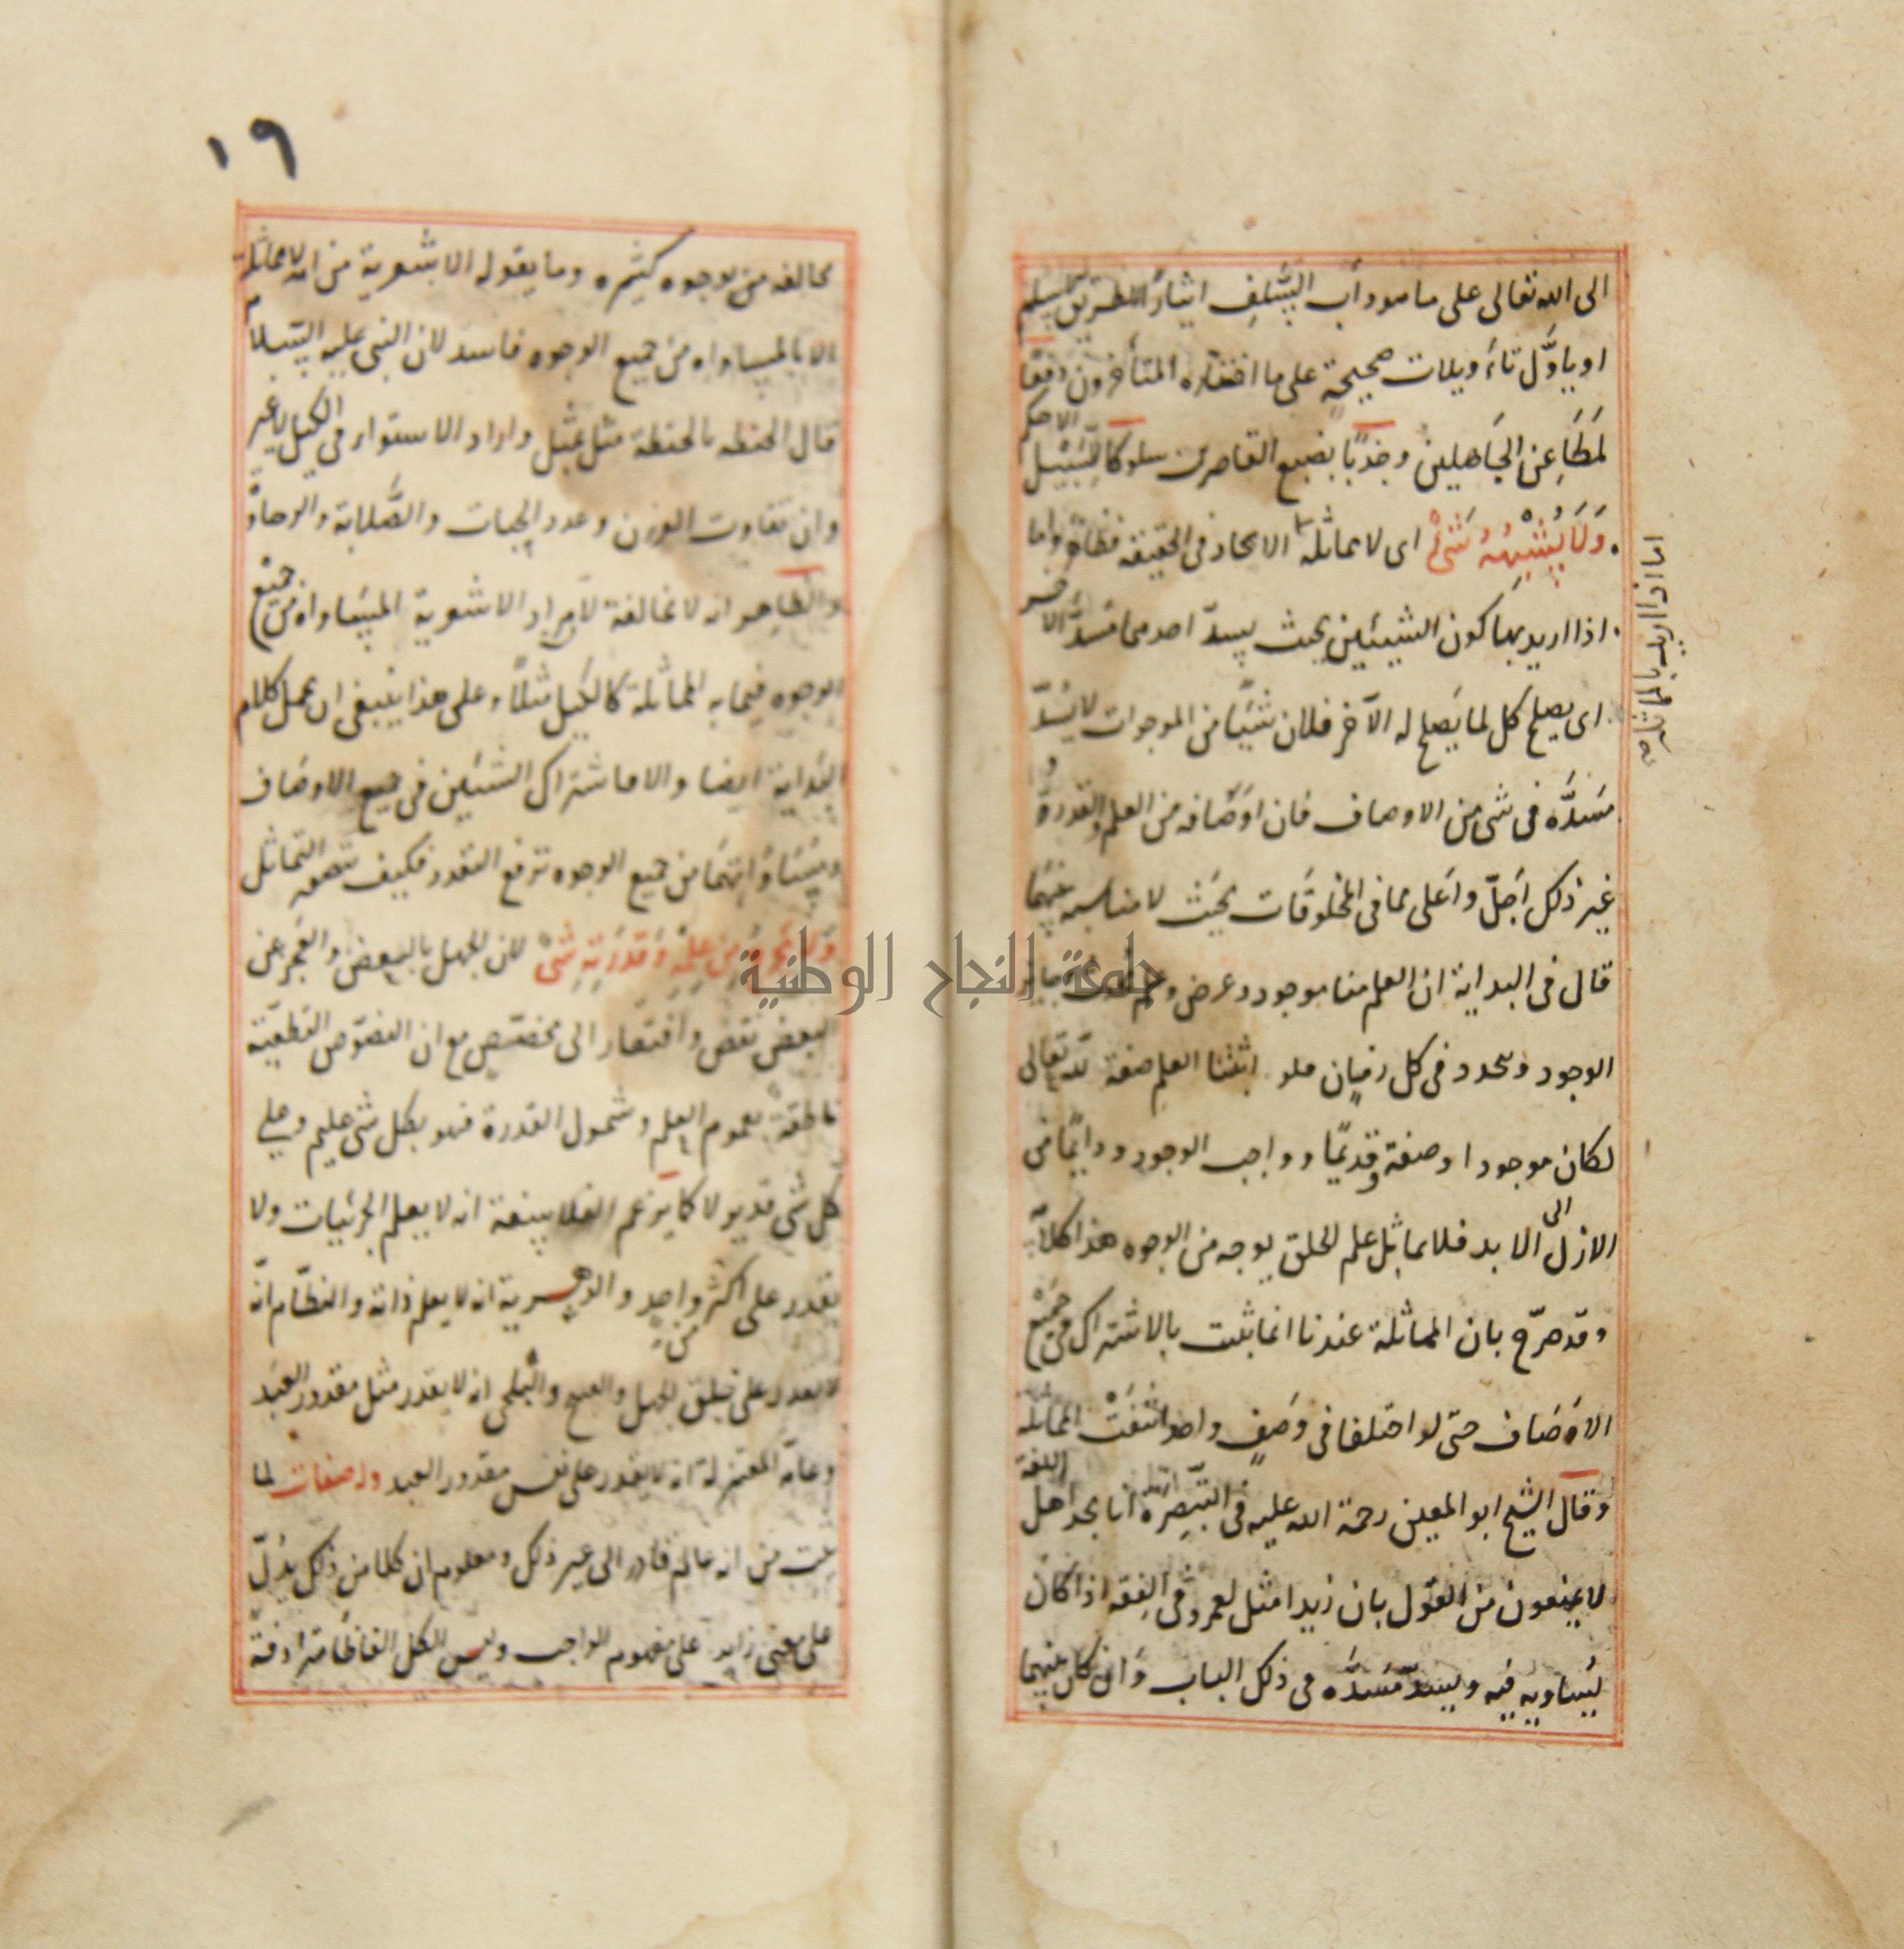 الى الله تعالى على ما هو دأب السَّلف ايثارًا للطريق الاسلم
او يأوَّل تاءويلات صحيحة على ما اختاره المتأخرون دفعًا
لمطاعن الجاهلين وجذبًا بضبع القاصرين سلوكا للسَّبيل الاحكم
وَلَا يُشْبِهُهُ شَىْءٌ اى لا يماثله اما الاتحاد فى الحقيقة فظاهر واما
اذا اريد بها كون الشيئين بحيث يسدّ احدهما مسدَّ الاخر
اى يصلح كل لما يصلح له الآخر فلان شيئًا من الموجودات لا يسُدّ
مَسَدَّه فى شى من الاوصاف فان اوصافه من العلم والقدرة و
غير ذلك اجَلّ واعلى مما فى المخلوقات بحيث لا مناسبة بينهما
قال فى البداية ان العلم منا موجود وعرض وعلم
الوجود ومتجدد فى كل زمان فلو اثبتنا العلم صفة لله تعالى
لكان موجودا وصفة وقديمًا وواجب الوجود ودايمًا من
الازل الى الابد فلا يماثل علم الخلق بوجه من الوجوه هذا كلامه
وقد صرّح بان المماثلة عندنا انما يثبت بالاشتراك فى جميع
الاوصاف حتى لو اختلفا فى وصفٍ واحد انتفت المماثلة
وقال الشيخ ابو المعين رحمة الله عليه فى التبصرة انا نجد اهل اللغة
لا يمنعون من القول بان زيدا مثل لعمرو فى الفقه اذا كان
يساويه فيه ويسدّ مسَدَّه فى ذلك الباب وان كان بينهما
١٩
مخالفة من بوجوه كثيره وما يقوله الاشعرية من انه لا مماثلة
الا بالمساواه من جميع الوجوه فاسد لان النبى عليه السلام
قال الحنطه بالحنطة مثل بمثل واراد الاستواء فى الكيل لا غير
وان تفاوت الوزن وعدد الحبات والصَّلابة والرخاوة
والظاهر انه لا مخالفة لان مراد الاشعرية المساواه من جميع
الوجوه فيما به المماثلة كالكيل مثلًا وعلى هذا ينبغى ان يحمل كلام
البداية ايضا والا فاشتراك الشئين فى جميع الاوصاف
ومساواتهما من جميع الوجوه ترفع التعدد فكيف يتصور التماثل
وَلَا يَخْرُجُ مِن عِلْمِهِ وَقُدْرَتِهِ شَىْءٌ لان الجهل بالبعض والعجز عن
البعض نقص وافتقار الى مخصّص مع ان النصوص القطعيّة
ناطقة بعموم العلم وشمول القدرة فهو بكل شى عليم وعلى
كل شى قدير لا كما يزعم الفلاسفة انه لا يعلم الجزئيات ولا
يقدر على اكثر من واحد والدهرية انه لا يعلم ذاته والنظّام انّه
لا يقدر على خلق الجهل والقبح والبلخى انه لا يقدر مثل مقدور العبد
وعامّة المعتزلة انه لا يقدر على نفس مقدور العبد وله صفات لما
ثبت من انه عالم قادر الى غير ذلك ومعلوم ان كلا من ذلك يدلّ
على معنى زايد على مفهوم الواجب وليس الكل الفاظًا مترادفة
جامعة النجاح الوطنية